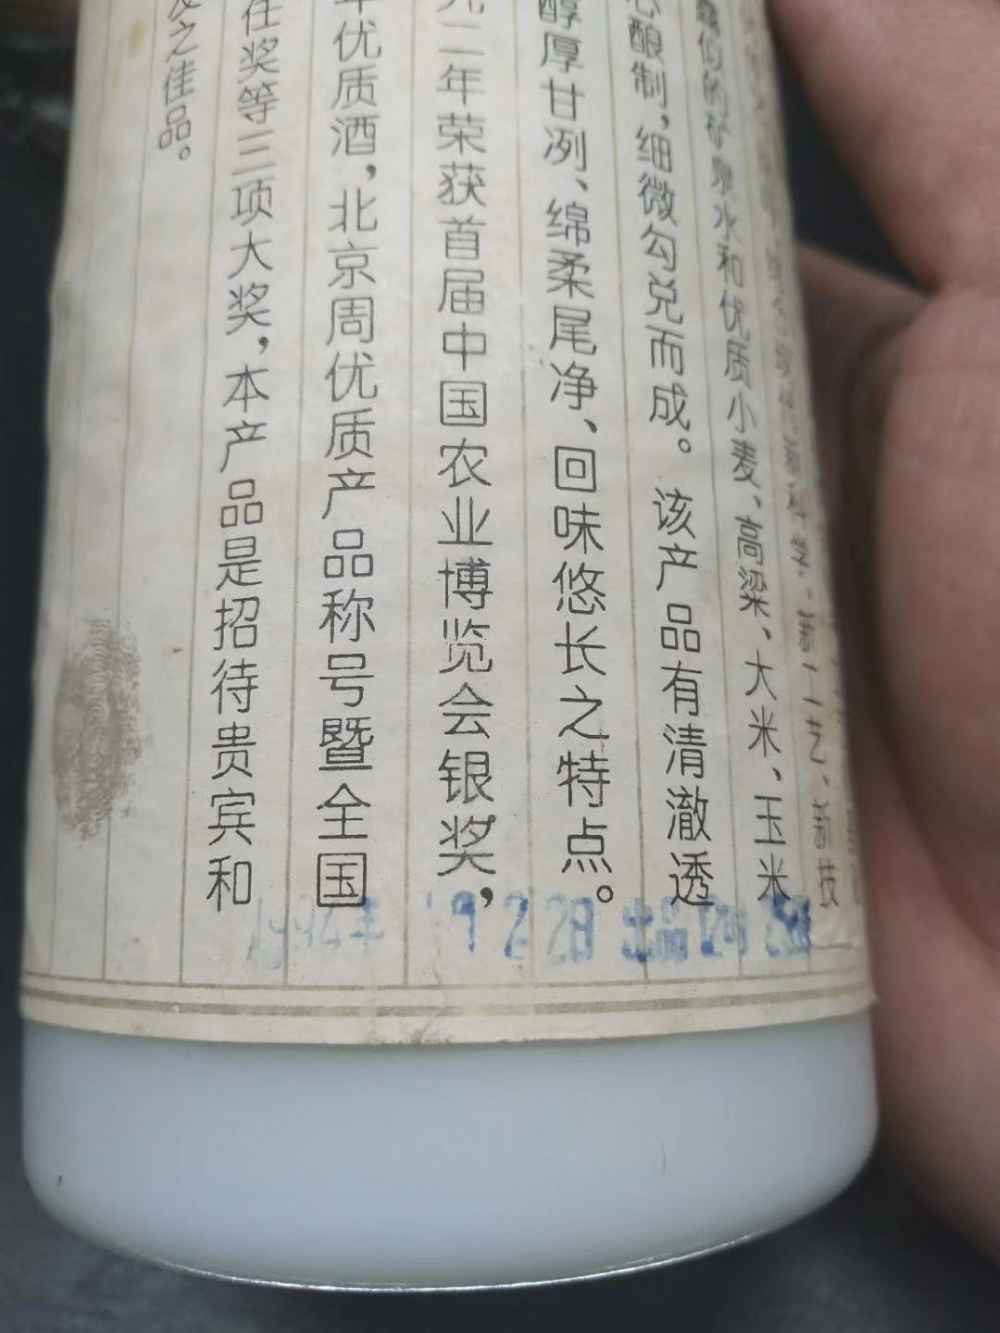 水和优质小麦、高粱、大米、玉米
酿制，细微勾兑而成。该产品有清澈透
醇厚甘冽、绵柔尾净、回味悠长之特点。
二年荣获首届中国农业博览会银奖，
年优质酒，北京周优质产品称号暨全国
奖等三项大奖，本产品是招待贵宾和
之佳品。
1994年 9 2 28 出品